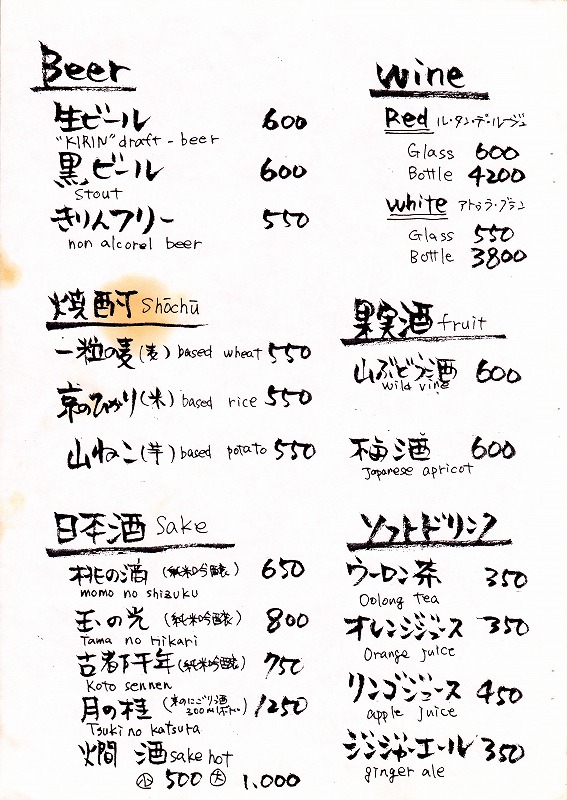 Beer
生ビール 600
"KIRIN" draft - beer
黒ビール 600
Stout
きりんフリー 550
non alcorel beer
焼酎 Shōchū
一粒の麦 (麦) based wheat 550
京のひかり (米) based rice 550
山ねこ (芋) based potato 550
日本酒 Sake
桃の滴 (純米吟醸) 650
momo no shizuku
玉の光 (純米吟醸) 800
Tama no Hikari
古都千年 (純米吟醸) 750
Koto sennen
月の桂 1250
Tsuki no katsura
燗酒 sake hot
小 500 大 1.000
Wine
Red ル・タン・デ・ルージュ
Glass 600
Bottle 4200
White
Glass 550
Bottle 3800
果実酒 fruit
山ぶどう酒 600
wild vine
梅酒 600
Japanese apricot
ソフトドリンク
ウーロン茶 350
Oolong tea
オレンジジュース 350
Orange juice
リンゴジュース 450
apple juice
ジンジャーエール 350
ginger ale